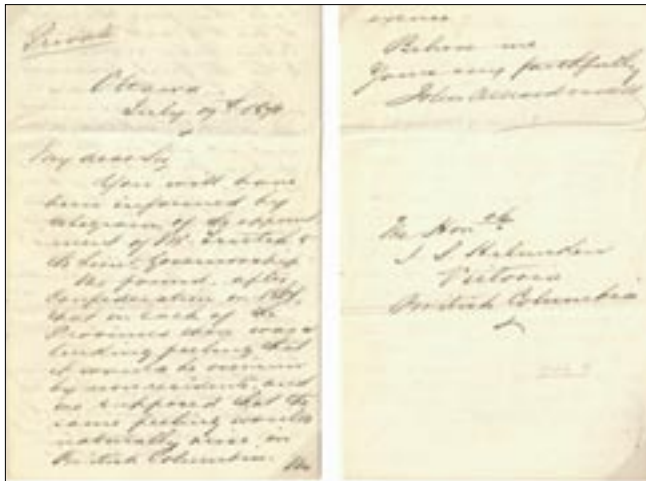 Private
Ottawa
July 19th 187
My dear Sir
You will have
been informed by
telegram of the appoint
ment of Mr. Trutch to
the Lieut. Governorship
We found, after
Confederation in 1867,
that in each of the
Provinces there was a
feeling that
it would be
by nonresidents, and
we supposed that the
same feeling would
naturally arise in
British Columbia.
Believe me
Yours very faithfully
John A Macdonald
The Honble
J. S. Helmcken
Victoria
British Columbia